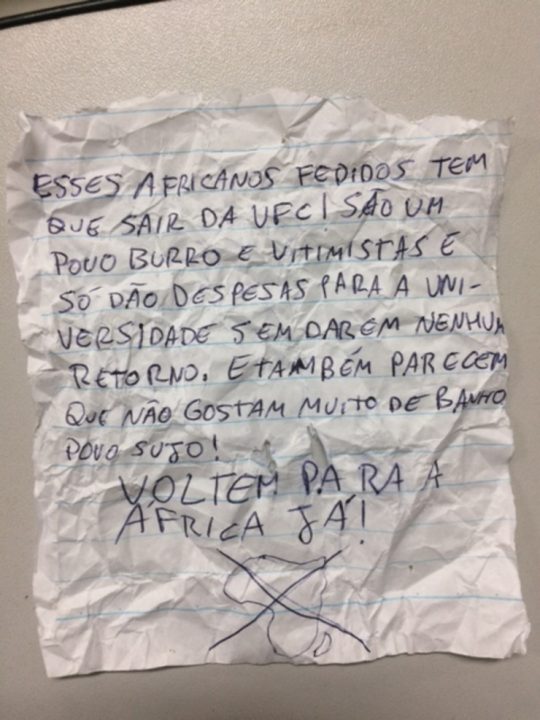 ESSES AFRICANOS FEDIDOS TEM
QUE SAIR DA UFC! SÃO UM
POVO BURRO E VITIMISTAS E
SÓ DÃO DESPESAS PARA A UNI-
VERSIDADE SEM DAREM NENHUM
RETORNO. E TAMBÉM PARECEM
QUE NÃO GOSTAM MUITO DE BANHO
POVO SUJO!
VOLTEM PARA A
ÁFRICA JÁ!